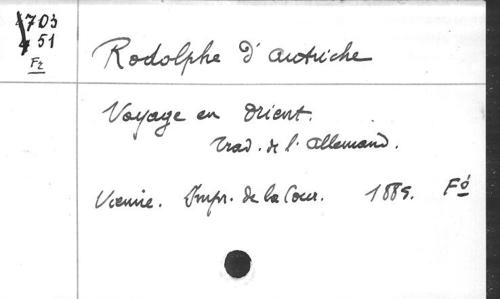 1703
51
Fz
Rodolphe d'Autriche
Voyage en Orient.
Trad. de l'Allemand.
Vienne. Impr. de la Cour. 1885. Fó